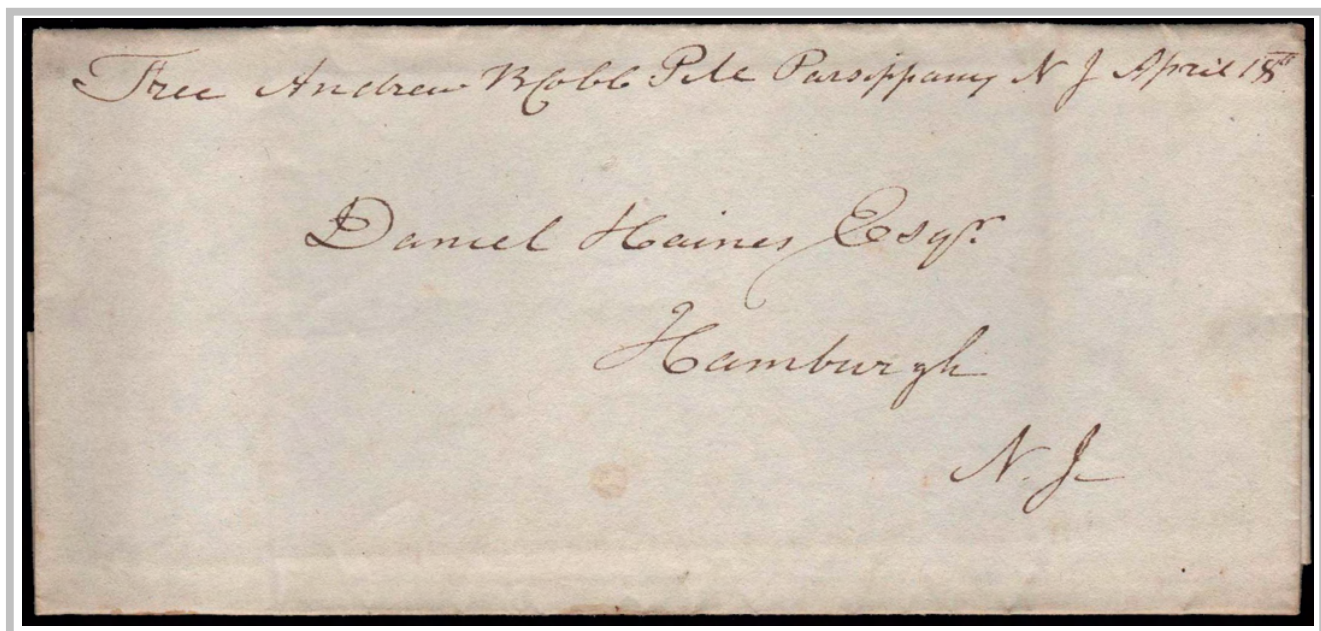 Free Andrew B Cobb P.M. Parsippany N J April 18th
Daniel Haines Esqr.
Hamburgh
N. J.